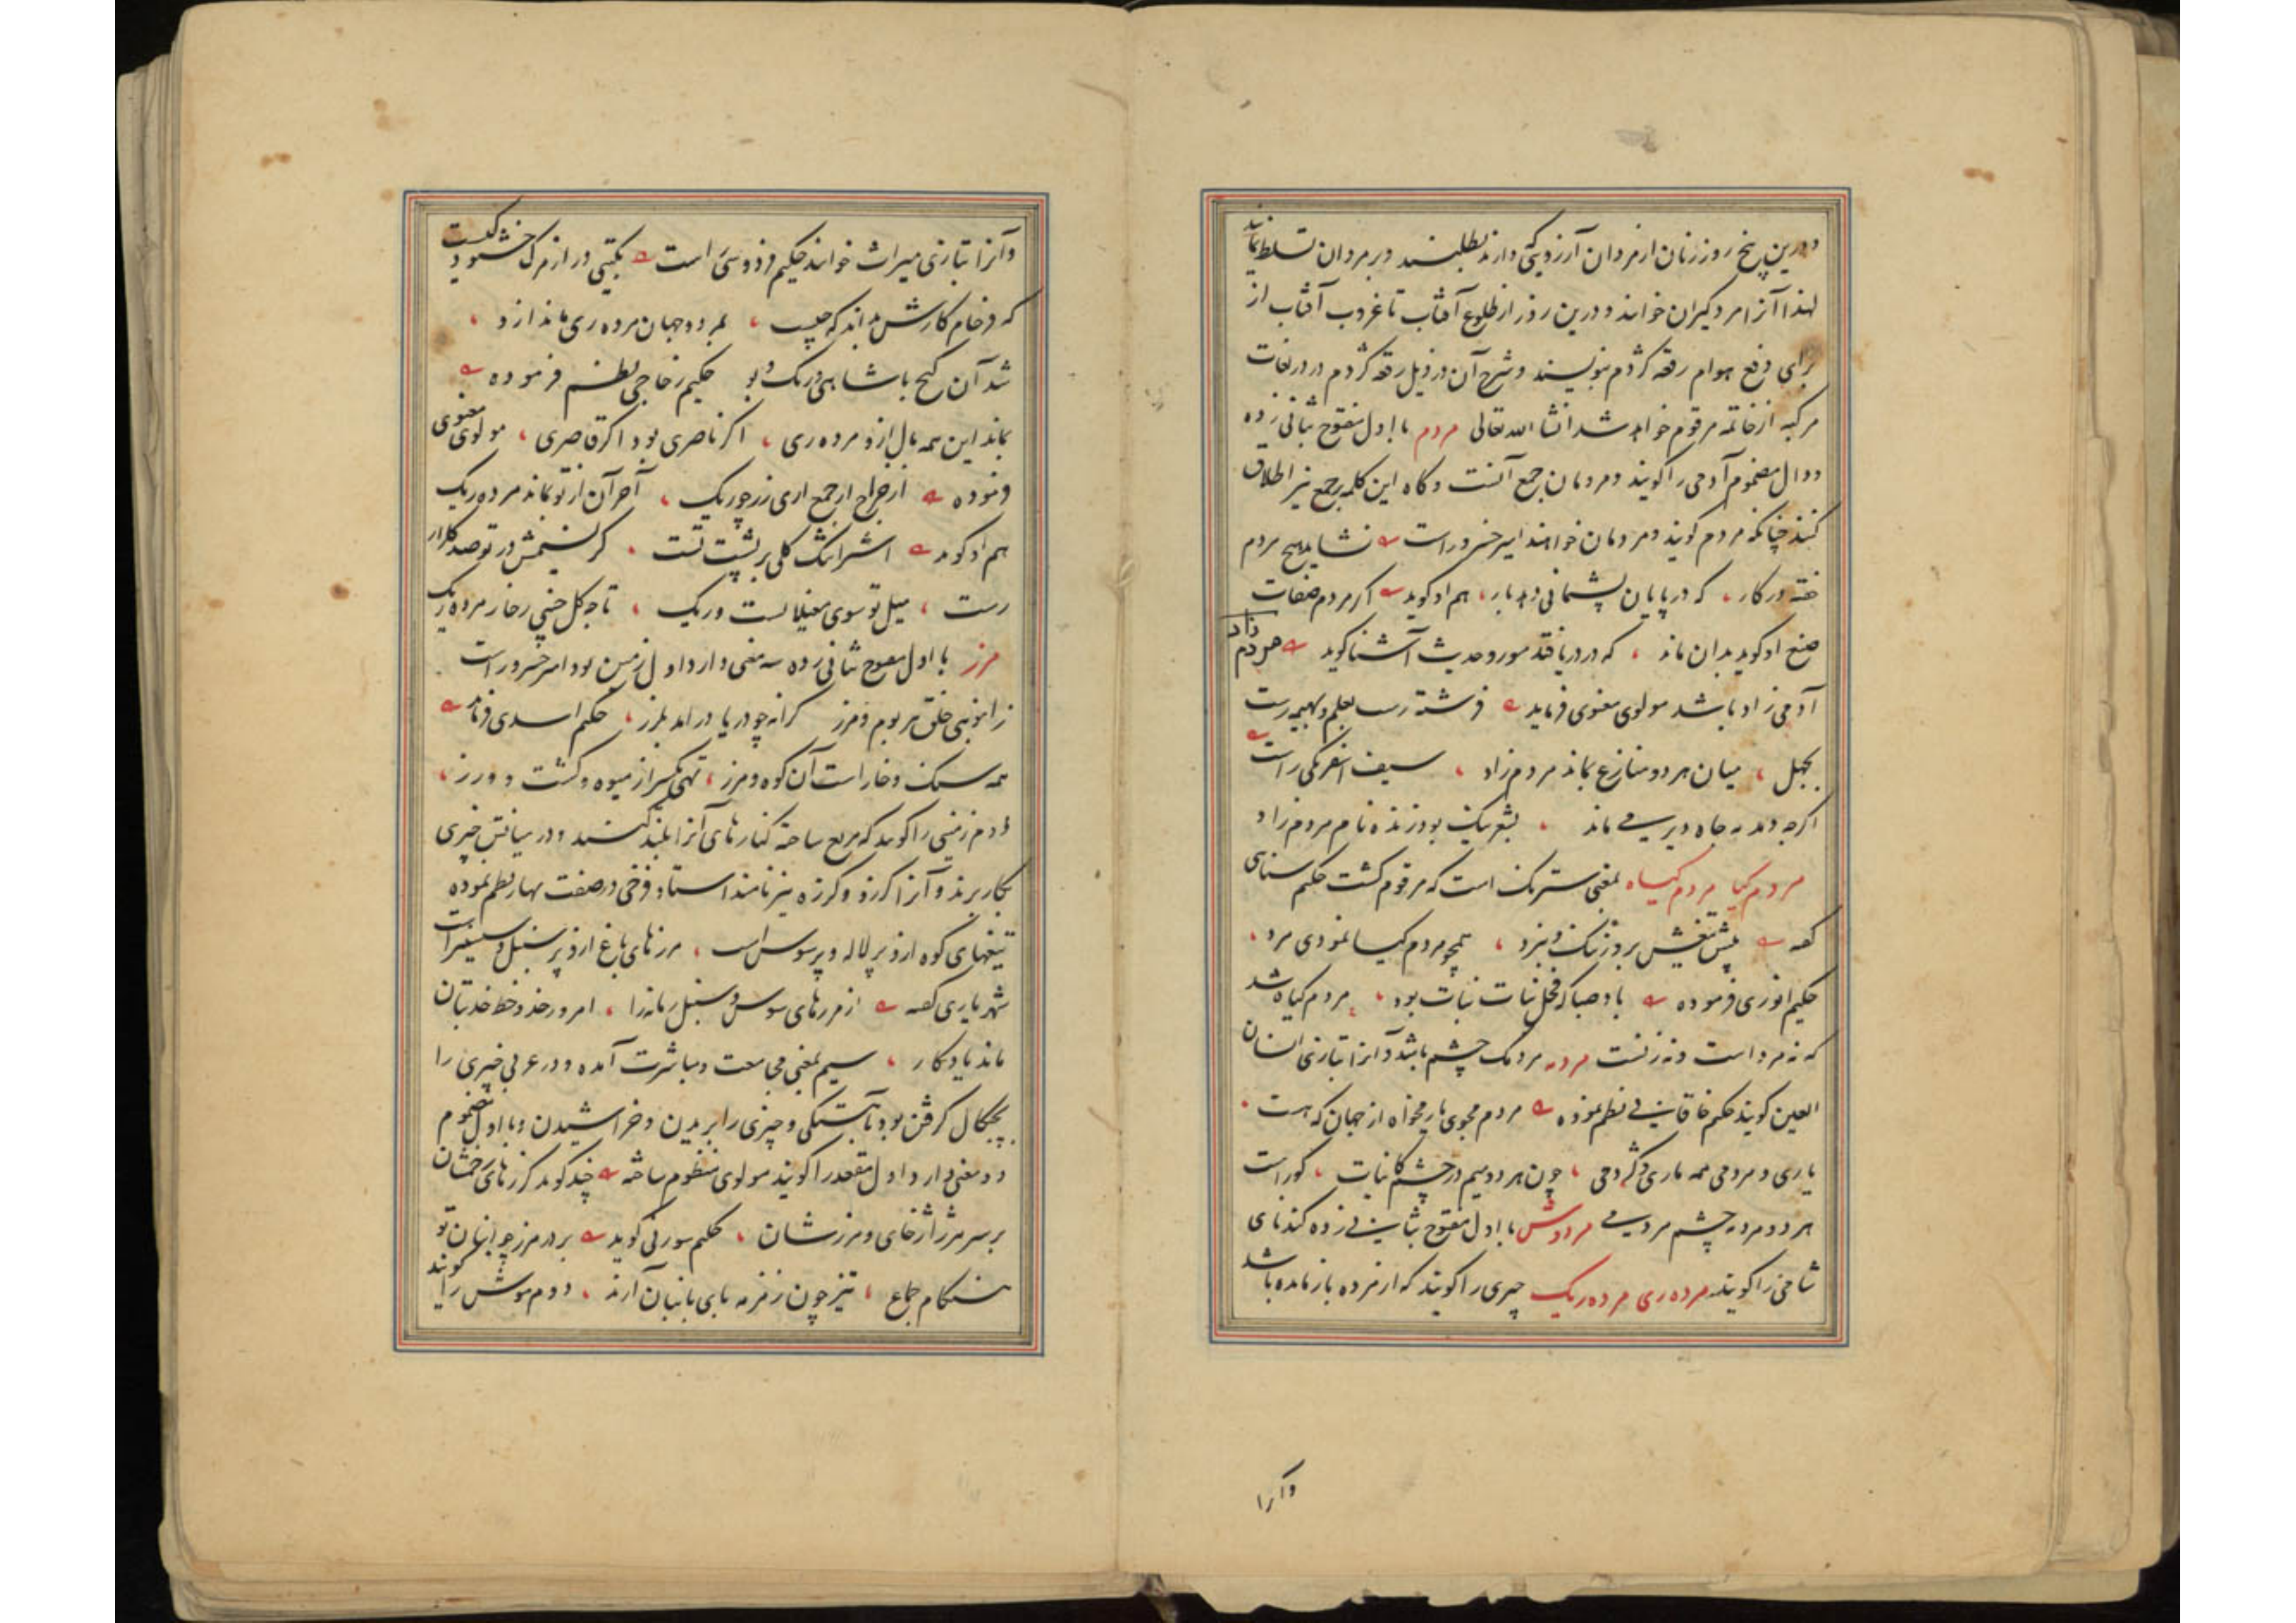 ودرین پنج روز زنان از مردان آرزویی که دارند بطلبند و بر مردان تسلط نمایند
لهذا آنرا مردگیران خوانند و درین روز از طلوع آفتاب تا غروب آفتاب از
برای دفع هوام رقعه کژدم بنویسند و شرح آن در ذیل رقعه کژدم در در لغات
مرکبه از خاتمه مرقوم خواهد شد انشا الله تعالی مردم با اول مفتوح بثانی زده
و دال مضموم آدمی را گویند و مردمان جمع آنست و گاه این کلمه بر جمع نیز اطلاق
کنند چنانکه مردم گویند و مردمان خواهند امیر خسرو راست نشاید هیچ مردم
خفته در کار، که در پایان پشیمانی دهد بار، هم او گوید اگر مردم صفات
صنع او گوید بدان ماند ، که در دریا فتد مور و حدیث آشنا گوید مردم زاد
آدمی زاد باشد مولوی معنوی فرماید فرشته رست بعلم و بهیمه رست
بجهل ، میان هر دو منازع بماند مردم زاد ، سیف اسفرنگی راست
اگرچه دهر به جاه دیر می ماند ، بشعر نیک بود زنده نام مردم زاد
مردم گیا مردم گیاه بمعنی سترنگ است که مرقوم گشت حکیم سنایی
گفته پیش تیغش بروز ننگ و نبرد ، همچو مردم گیا نمودی مرد ،
حکیم انوری فرموده باد صبا که فحل نبات نبات بود ، مردم گیاه شد
که نه مرد است و نه زنست مردمه مردمک چشم باشد و آنرا بتازی انسان
العین گویند حکیم خاقانی نظم نموده مردم مجوی یار مخواه از جهان که هست
یاری و مردمی همه ماری و کژدمی ، چون هر دو میم در چشم کاینات ، کور است
هر دو مردمه چشم مردمی مردوش با اول مفتوح بثانی زده گندنای
شامی را گویند مرده ری مرده ریک چیزی را گویند که از مرده باز مانده باشد
وآنرا
وآنرا بتازی میراث خوانند حکیم فردوسی راست بگیتی در از مرگ خشنود کیست
که فرجام کارش نداند که چیست ، بمرد و جهان مرده ری ماند ازو ،
شد آن گنج با شاهی و رنگ و بو حکیم زجاجی بنظم فرموده
بماند این همه مال ازو مرده ری ، اگر ناصری بود اگر قاصری ، مولوی معنوی
فرموده از خراج ار جمع آری زر چو ریگ ، آخر آن از تو بماند مرده ریگ
هم او گوید اشترا تنگ گلی بر پشت تست ، کز نسیمش در تو صد گلزار
رست ، میل تو سوی مغیلانست و ریگ ، تا چه گل چنی ز خار مرده ریگ
مرز با اول مفتوح بثانی زده سه معنی دارد اول زمین بود امیر خسرو راست
ز انبوهی خلق هر بوم و مرز کرانه چو دریا درآمد بلرز ، حکیم اسدی فرماید
همه سنگ و خار است آن کوه و مرز ، تهی یکسر از میوه و کشت و ورز ،
دوم زمینی را گویند که مربع ساخته کنارهای آنرا بلند کنند و در میانش چیزی
بکار برند و آنرا کرز و کرزه نیز نامند استاد فرخی در صفت بهار نظم نموده
تیغهای کوه ازو پر لاله و پر سوسن است ، مرزهای باغ ازو پر سنبل و سیسنبر است
شهریاری گفته از مرزهای سوسن و سنبل زمانه را ، امروز خد و خط خدبتان
ماند یادگار ، سیم بمعنی مجامعت و مباشرت آمده و در عربی چیزی را
بچنگال گرفتن بود بآهستگی و چیزی را بریدن و خراشیدن و با اول مضموم
دو معنی دارد اول مقعد را گویند مولوی منظوم ساخته چند گوید کرزهای خشتان
بر سر مرز اژخای و مرزشان ، حکیم سوزنی گوید بردر مرز چو انبان تو
هنگام جماع ، تیز چون زمزمه نای بانبان آرند ، دوم موش را گویند